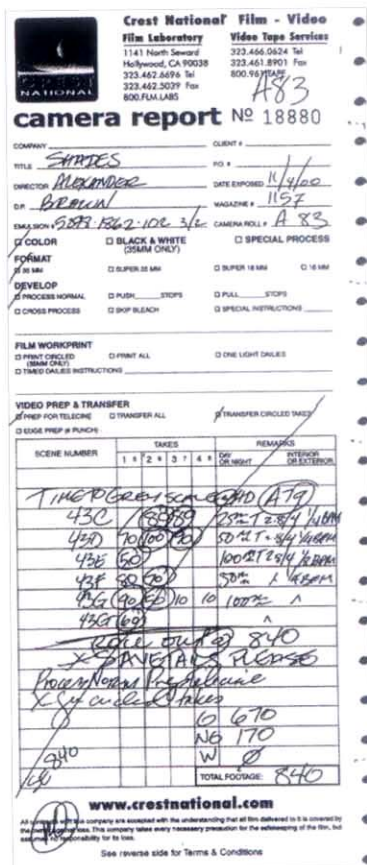 Crest National Film - Video
Film Laboratory
1141 North Seward
Hollywood, CA 90038
323.462.6696 Tel
323.462.5039 Fax
800.FLM.LABS
Video Tape Services
323.466.0624 Tel
323.461.8901 Fax
800.961.TAPE
NATIONAL
A83
camera report Nº 18880
COMPANY CLIENT #
TITLE SHADES P.O. #
DIRECTOR ALEXANDER DATE EXPOSED 11/4/00
D.P. BROWN MAGAZINE # 1157
EMULSION # 5293-1862-102 3/2 CAMERA ROLL # A 83
COLOR BLACK & WHITE (35MM ONLY) SPECIAL PROCESS
FORMAT
35 MM SUPER 35 MM SUPER 16 MM 16 MM
DEVELOP
PROCESS NORMAL PUSH STOPS PULL STOPS
CROSS PROCESS SKIP BLEACH SPECIAL INSTRUCTIONS
FILM WORKPRINT
PRINT CIRCLED (35MM ONLY) PRINT ALL ONE LIGHT DAILIES
TIMED DAILIES INSTRUCTIONS
VIDEO PREP & TRANSFER
PREP FOR TELECINE TRANSFER ALL TRANSFER CIRCLED TAKES
EDGE PREP (K PUNCH)
SCENE NUMBER TAKES REMARKS
1 5 2 6 3 7 4 8 DAY OR NIGHT INTERIOR OR EXTERIOR
TIME TO GREY SCALE HD A79
43C 89 25mm T2.8/4
43D 70 100 90 50mm
43E 50 100mm T2.8/4
43F 80 90 50mm
43G 90 60 10 10 100mm ^
43G 60 ^
840
X SAVE TAILS PLEASE
Process Norm Prep Telecine
circled takes
G 670
NG 170
840 W Ø
TOTAL FOOTAGE: 840
www.crestnational.com
All contracts with this company are accepted with the understanding that all film delivered to it is covered by
the owner against loss. This company takes every necessary precaution for the safekeeping of the film, but
assumes no responsibility for its loss.
See reverse side for Terms & Conditions